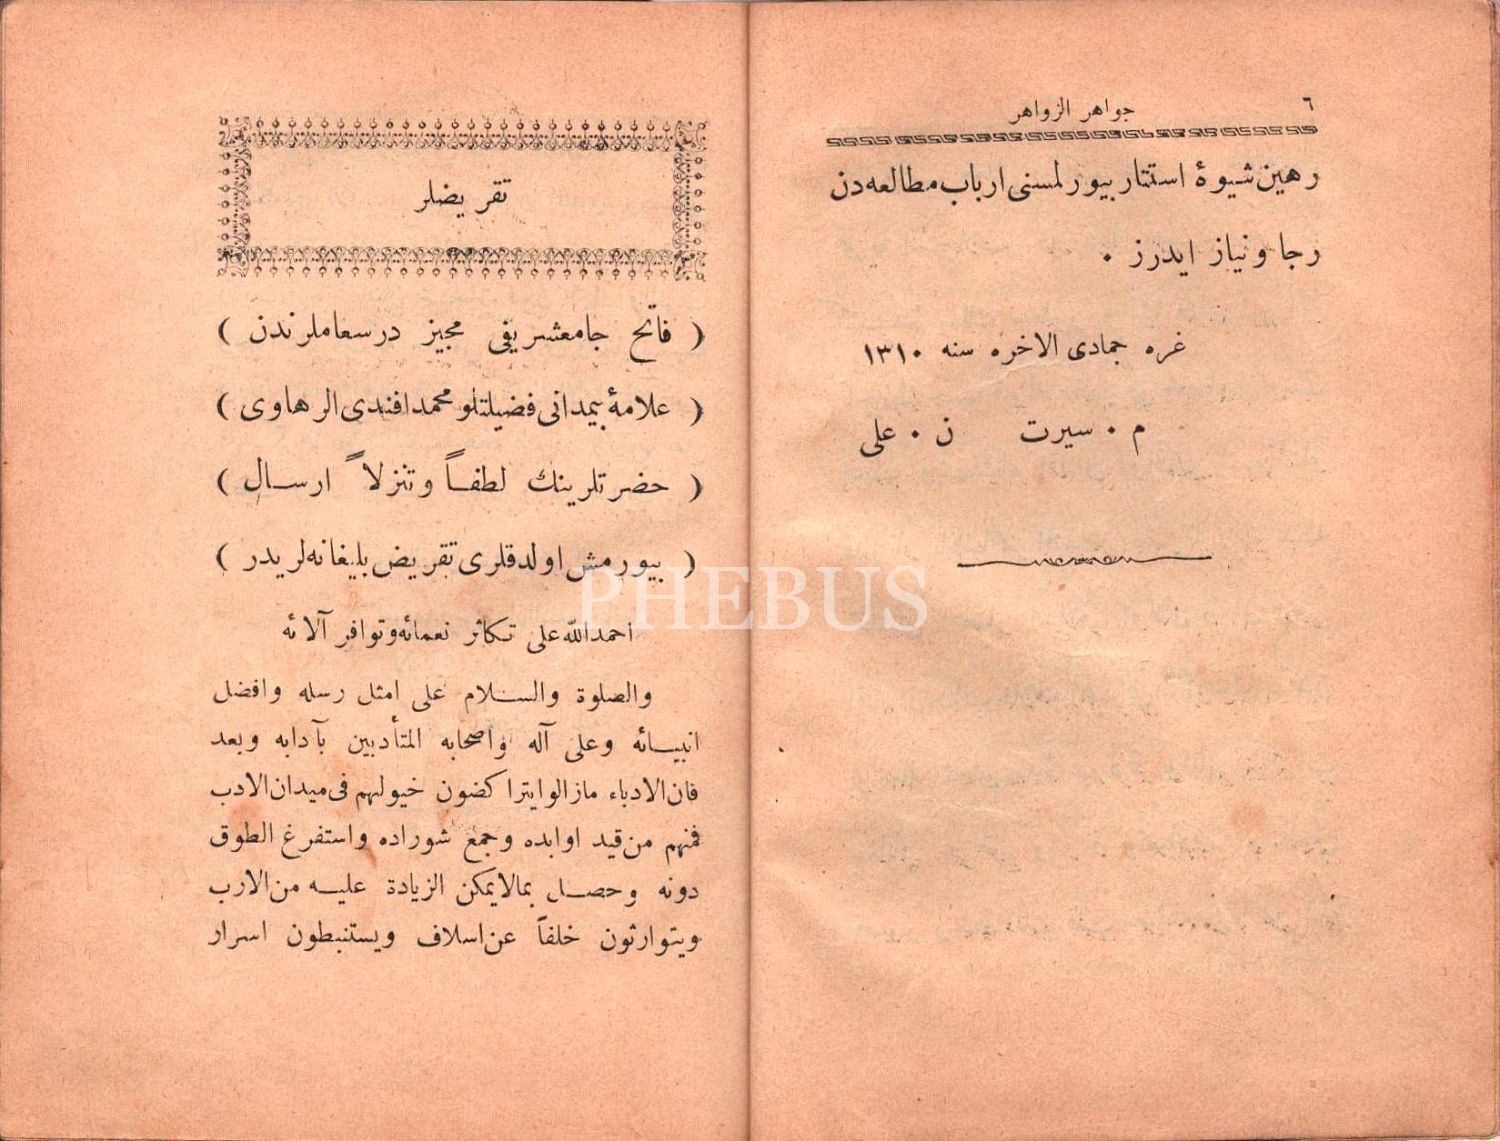 ٦
جواهر الزواهر
رهین شیوۀ استتار بیورلمسنی ارباب مطالعه‌دن
رجا ونیاز ایدرز ٠
غره جمادی الاخره سنه ١٣١٠
م ٠ سیرت ن ٠ علی
تقریضلر
( فاتح جامعشریفی مجیز درسعاملرندن )
( علامۀ بیمدانی فضیلتلو محمد افندی الرهاوی )
( حضرتلرینك لطفاً وتنزلاً ارسال )
( بیورمش اولدقلری تقریض بلیغانه‌لریدر )
احمد الله علی تکاثر نعمائه وتوافر آلائه
والصلوة والسلام علی امثل رسله وافضل
انبیائه وعلی آله واصحابه المتأدبین بآدابه وبعد
فان الادباء مازالوا یتراکضون خیولهم فی میدان الادب
فمنهم من قید اوابده وجمع شوراده واستفرغ الطوق
دونه وحصل بمالایمکن الزیادة علیه من الارب
ویتوارثون خلفاً عن اسلاف ویستنبطون اسرار
PHEBUS